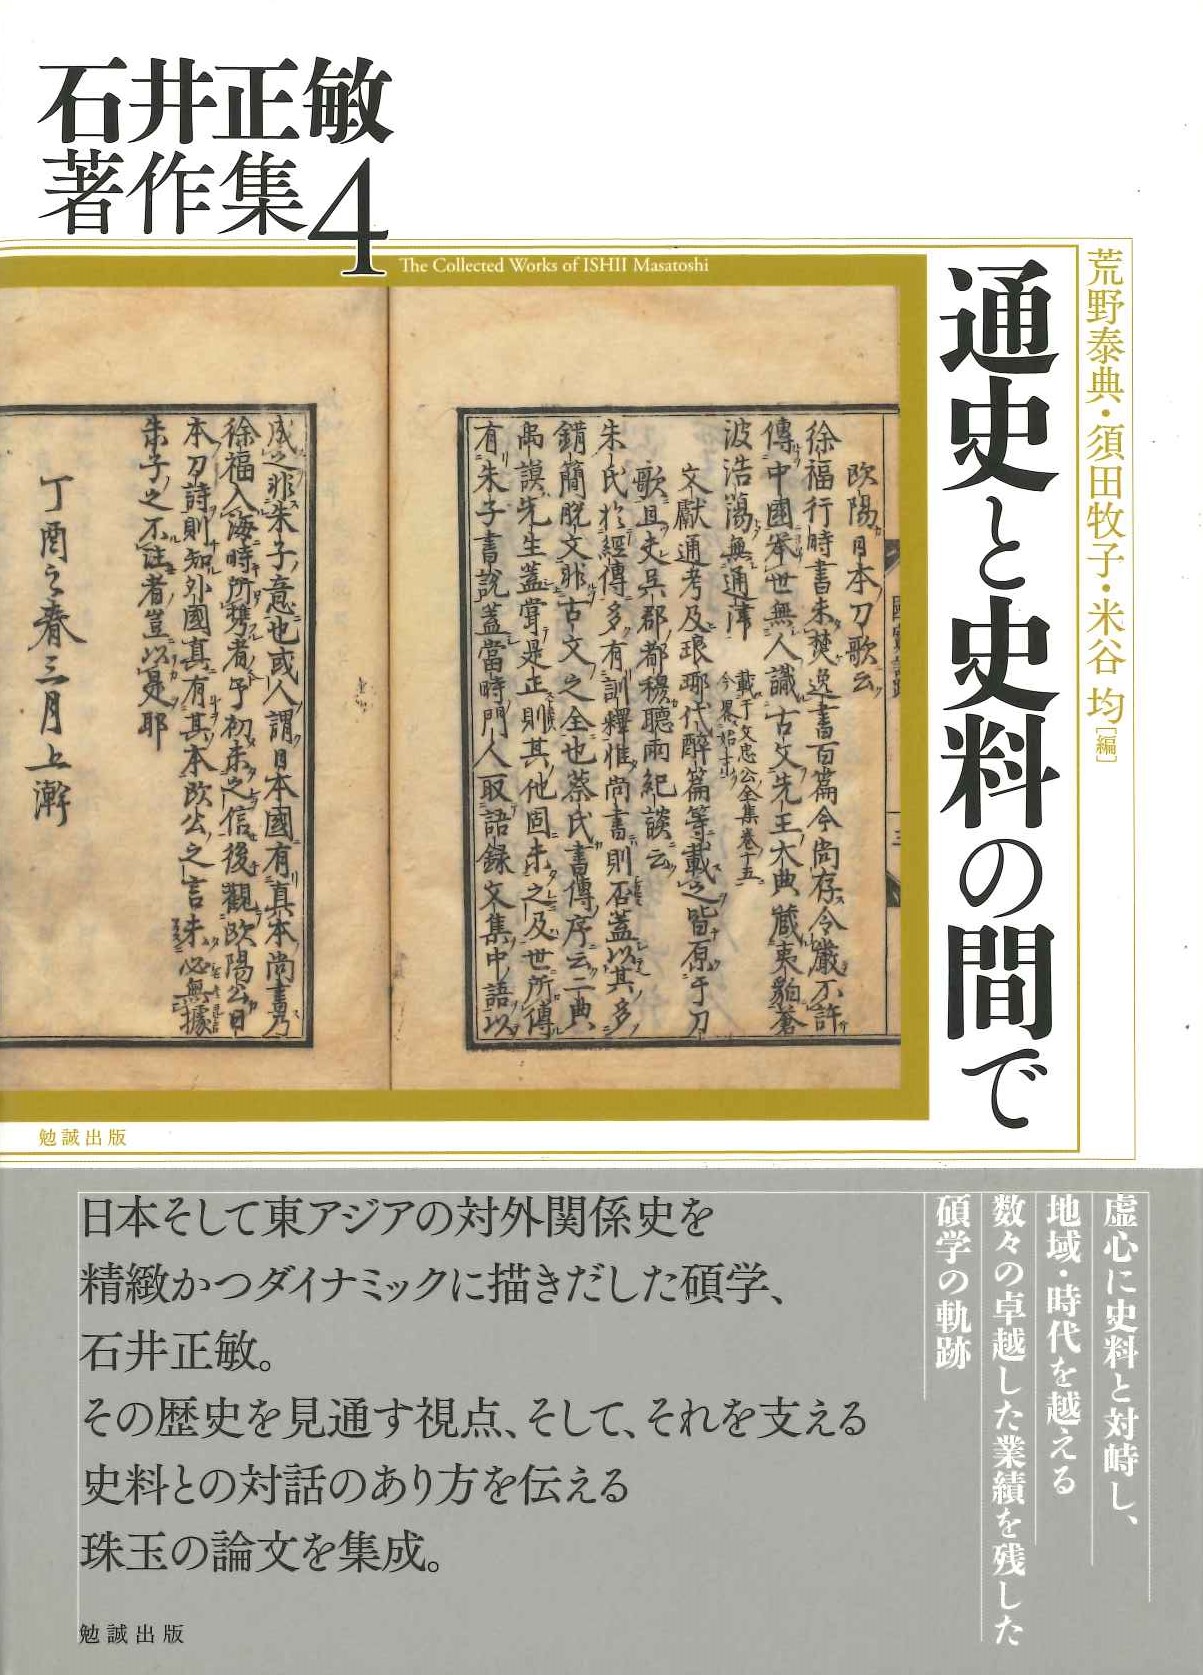 石井正敏
著作集4
The Collected Works of ISHII Masatoshi
荒野泰典・須田牧子・米谷 均[編]
通史と史料の間で
歐陽日本刀歌云
徐福行時書未焚逸書百篇今尚存令嚴不許
傳中國舉世無人識古文先王大典藏夷貊蒼
波浩蕩無通津
載于文忠公全集卷十五
文獻通考及琅琊代醉篇等載之皆原于刀
歌且吏吳郡都穆聽雨紀談云
朱氏於經傳多有訓釋惟尚書則否蓋以其多
錯簡脫文非古文之全也蔡氏書傳序云二典
禹謨先生蓋嘗是正則其他固未之及世所傳
有朱子書說蓋當時門人取語錄文集中語以
成之非朱子意也或人謂日本國有真本尚書乃
徐福入海時所攜者予初未之信後觀歐陽公日
本刀詩則知外國真有其本歐公之言未必無據
朱子之不註者豈以是耶
丁酉之春三月上澣
勉誠出版
虚心に史料と対峙し、
地域・時代を越える
数々の卓越した業績を残した
碩学の軌跡
日本そして東アジアの対外関係史を
精緻かつダイナミックに描きだした碩学、
石井正敏。
その歴史を見通す視点、そして、それを支える
史料との対話のあり方を伝える
珠玉の論文を集成。
勉誠出版